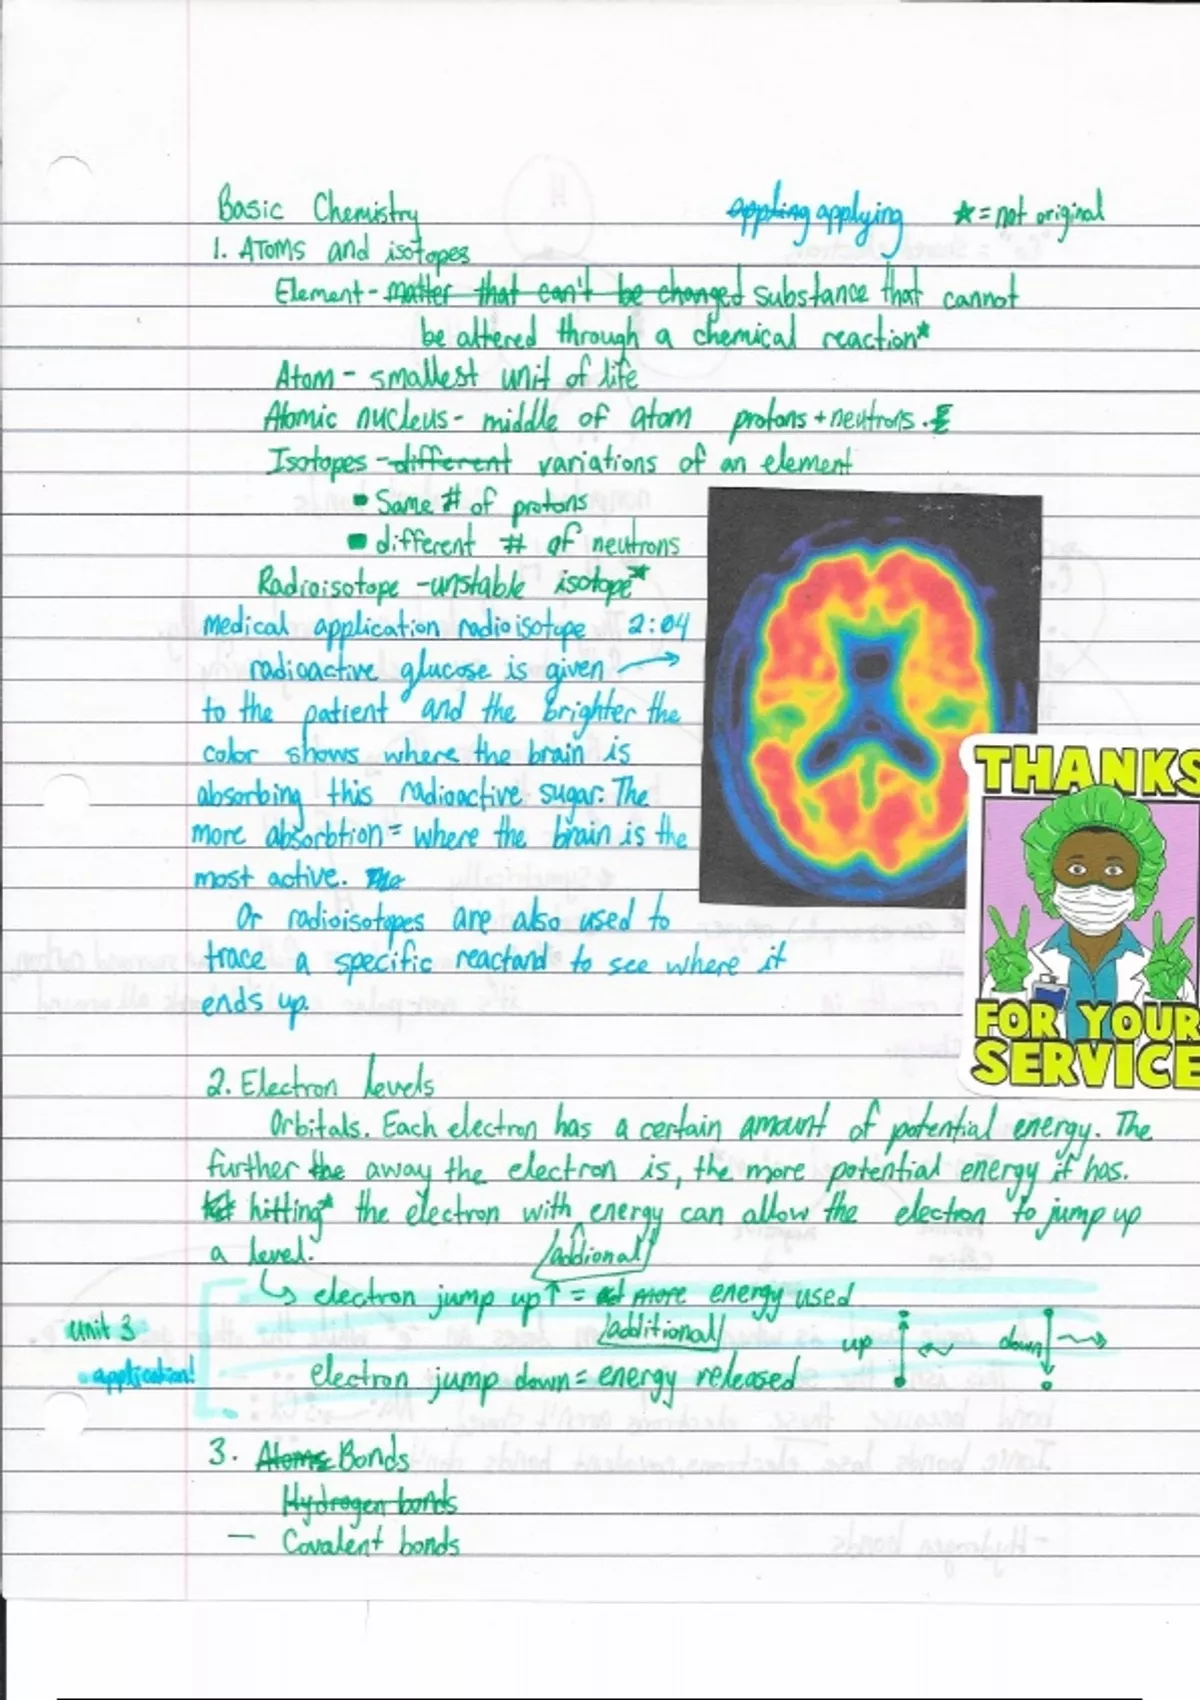 Basic Chemistry
appling applying ★ = not original
1. Atoms and isotopes
Element - matter that can't be changed substance that cannot
be altered through a chemical reaction*
Atom - smallest unit of life
Atomic nucleus - middle of atom protons + neutrons.
Isotopes - different variations of an element
▪ Same # of protons
▪ different # of neutrons
Radioisotope - unstable isotope*
Medical application radioisotope 2:04
radioactive glucose is given →
to the patient and the brighter the
color shows where the brain is
absorbing this radioactive sugar. The
more absorbtion = where the brain is the
most active. The
Or radioisotopes are also used to
trace a specific reactand to see where it
ends up.
THANKS
FOR YOUR
SERVICE
2. Electron levels
Orbitals. Each electron has a certain amount of potential energy. The
further the away the electron is, the more potential energy it has.
hitting* the electron with energy can allow the electron to jump up
a level. /addional/
↳ electron jump up↑ = more energy used
/additional/
unit 3
up down
application!
electron jump down = energy released
3. Atoms Bonds
Hydrogen bonds
— Covalent bonds